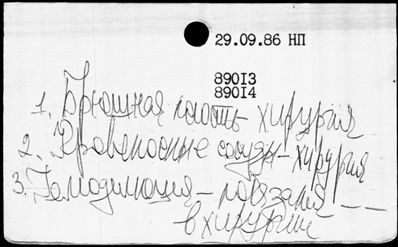 29.09.86 НП
89013
89014
1. Брюшная полость - хирургия
2. Кровеносные сосуды - хирургия
3. Гемодилюция - показания -
в хирургии